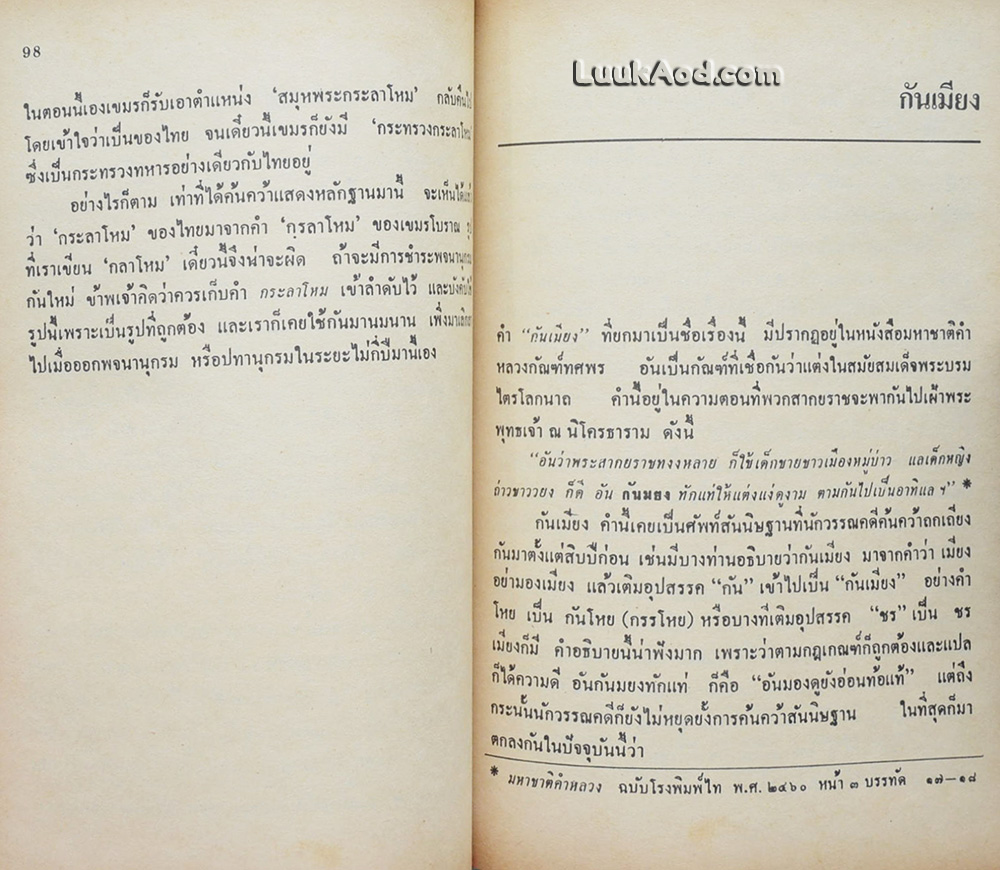 98
ในตอนนี้เองเขมรก็รับเอาตำแหน่ง ‘สมุหพระกระลาโหม’ กลับคืนไป
โดยเข้าใจว่าเป็นของไทย จนเดี๋ยวนี้เขมรก็ยังมี ‘กระทรวงกระลาโหม’
ซึ่งเป็นกระทรวงทหารอย่างเดียวกับไทยอยู่
อย่างไรก็ตาม เท่าที่ได้ค้นคว้าแสดงหลักฐานมานี้ จะเห็นได้
ว่า ‘กระลาโหม’ ของไทยมาจากคำ ‘กฺรลาโหม’ ของเขมรโบราณ
ที่เราเขียน ‘กลาโหม’ เดี๋ยวนี้จึงน่าจะผิด ถ้าจะมีการชำระพจนานุกรม
กันใหม่ ข้าพเจ้าคิดว่าควรเก็บคำ กระลาโหม เข้าลำดับไว้ และบังคับ
รูปนี้เพราะเป็นรูปที่ถูกต้อง และเราก็เคยใช้กันมานมนาน เพิ่งมา
ไปเมื่อออกพจนานุกรม หรือปทานุกรมในระยะไม่กี่ปีมานี้เอง
LuukAod.com
กันเมียง
คำ “กันเมียง” ที่ยกมาเป็นชื่อเรื่องนี้ มีปรากฏอยู่ในหนังสือมหาชาติคำ
หลวงกัณฑ์ทศพร อันเป็นกัณฑ์ที่เชื่อกันว่าแต่งในสมัยสมเด็จพระบรม
ไตรโลกนาถ คำนี้อยู่ในความตอนที่พวกสากยราชจะพากันไปเฝ้าพระ
พุทธเจ้า ณ นิโครธาราม ดังนี้
“อันว่าพระสากยราชทงงหลาย ก็ใช้เด็กชายชาวเมืองหมู่บ่าว แลเด็กหญิง
ถ่าวชาววยง ก็ดี อัน กันมยง ทักแท่ให้แต่งแง่ดูงาม ตามกันไปเป็นอาทิแล ฯ” *
กันเมียง คำนี้เคยเป็นศัพท์สันนิษฐานที่นักวรรณคดีค้นคว้าถกเถียง
กันมาตั้งแต่สิบปีก่อน เช่นมีบางท่านอธิบายว่ากันเมียง มาจากคำว่า เมียง
อย่ามองเมียง แล้วเติมอุปสรรค “กัน” เข้าไปเป็น “กันเมียง” อย่างคำ
โหย เป็น กันโหย (กรรโหย) หรือบางทีเติมอุปสรรค “ชร” เป็น ชร
เมียงก็มี คำอธิบายนี้น่าฟังมาก เพราะว่าตามกฎเกณฑ์ก็ถูกต้องและแปล
ก็ได้ความดี อันกันมยงทักแท่ ก็คือ “อันมองดูยังอ่อนท้อแท้” แต่ถึง
กระนั้นนักวรรณคดีก็ยังไม่หยุดยั้งการค้นคว้าสันนิษฐาน ในที่สุดก็มา
ตกลงกันในปัจจุบันนี้ว่า
* มหาชาติคำหลวง ฉบับโรงพิมพ์ไท พ.ศ. ๒๔๖๐ หน้า ๓ บรรทัด ๑๗—๑๘